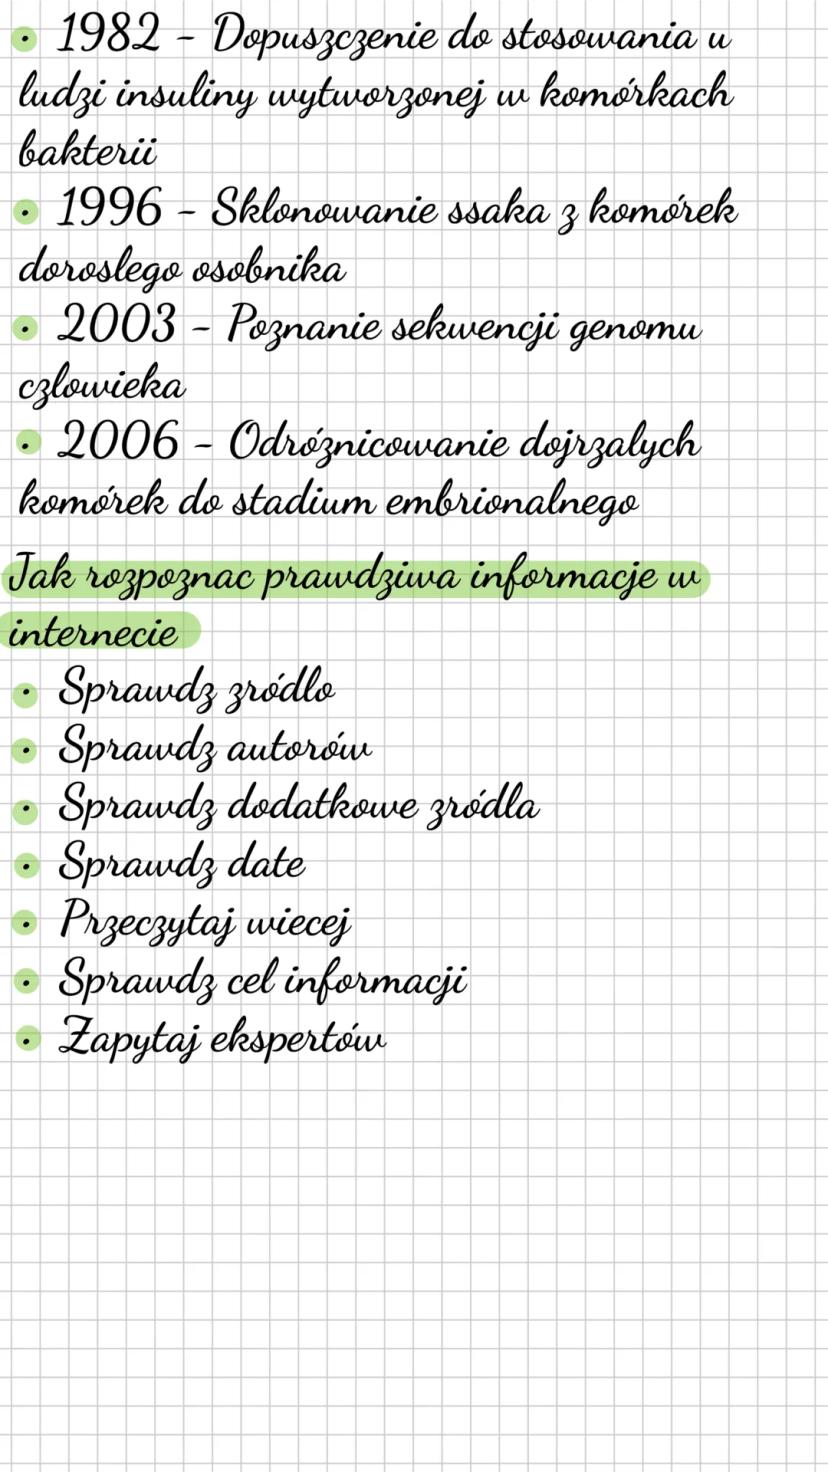 • 1982 - Dopuszczenie do stosowania u
ludzi insuliny wytworzonej w komórkach
bakterii
• 1996 - Sklonowanie ssaka z komórek
doroslego osobnika
• 2003 - Poznanie sekwencji genomu
czlowieka
• 2006 - Odróznicowanie dojrzalych
komórek do stadium embrionalnego
Jak rozpoznac prawdziwa informacje w
internecie
• Sprawdz zródlo
• Sprawdz autorów
• Sprawdz dodatkowe zródla
• Sprawdz date
• Przeczytaj wiecej
• Sprawdz cel informacji
• Zapytaj ekspertów